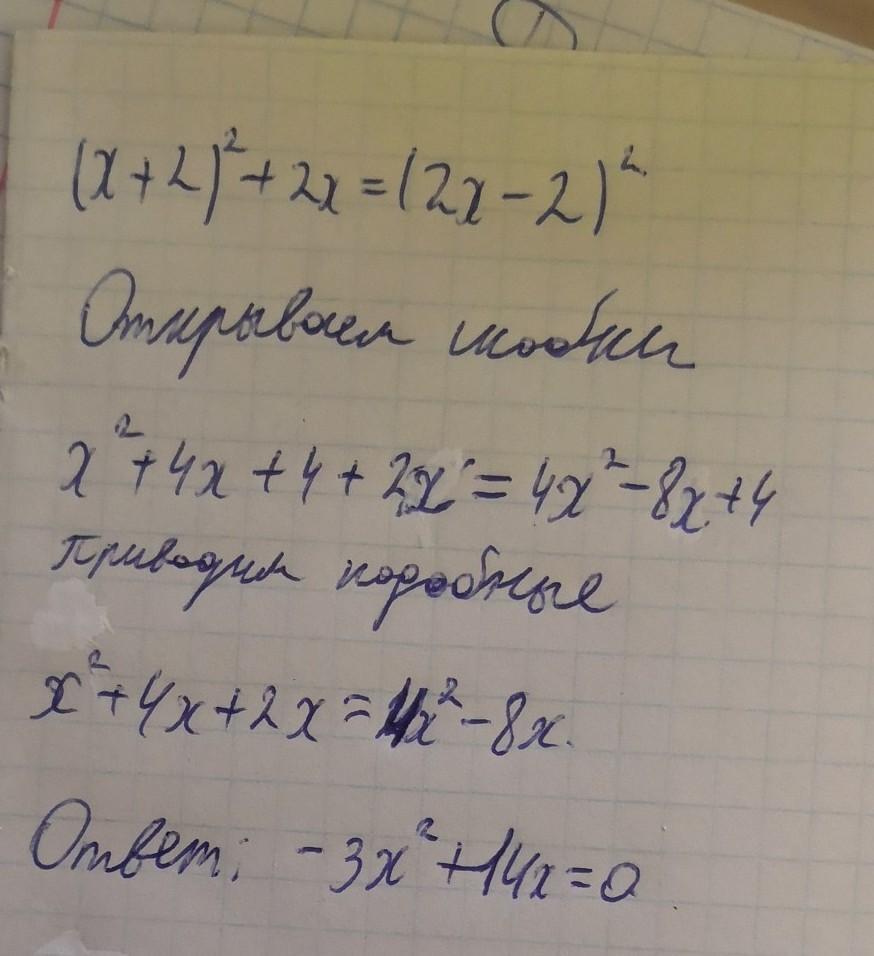 (x+2)²+2x=(2x-2)²
Открываем скобки
x²+4x+4+2x=4x²-8x+4
приводим подобные
x²+4x+2x=4x²-8x.
Ответ: -3x²+14x=0